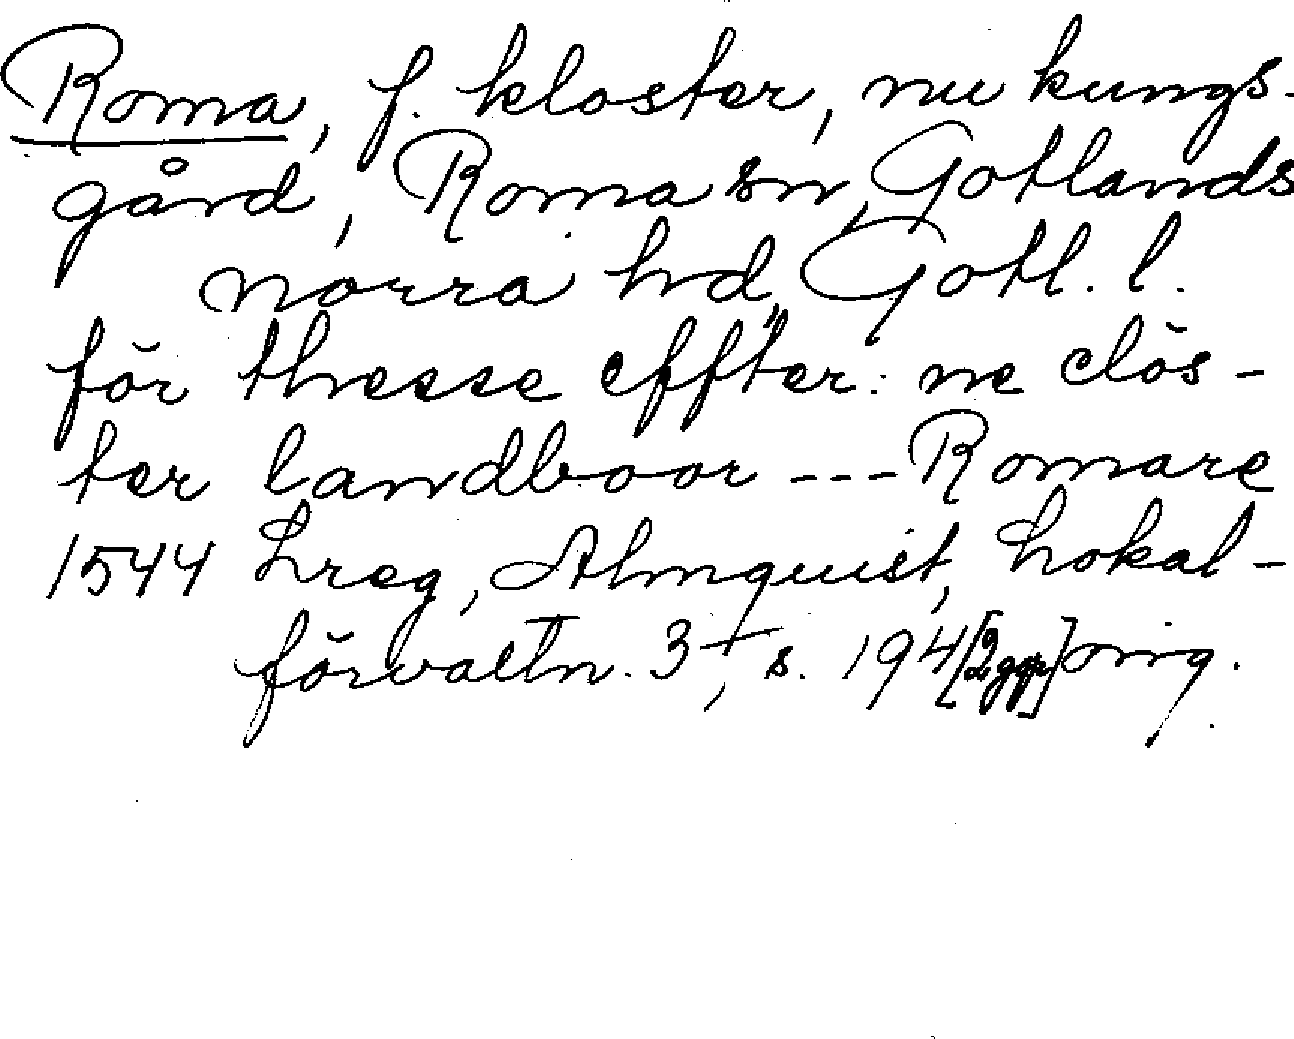 Roma, f. kloster, nu kungs-
gård, Roma sn, Gotlands
norra hd, Gotl. l.
för thesse effter: ne clös-
ter landboor --- Romare
1544 Lreg, Almquist, Lokal-
förvaltn. 3, s. 194 [2 ggr] orig.